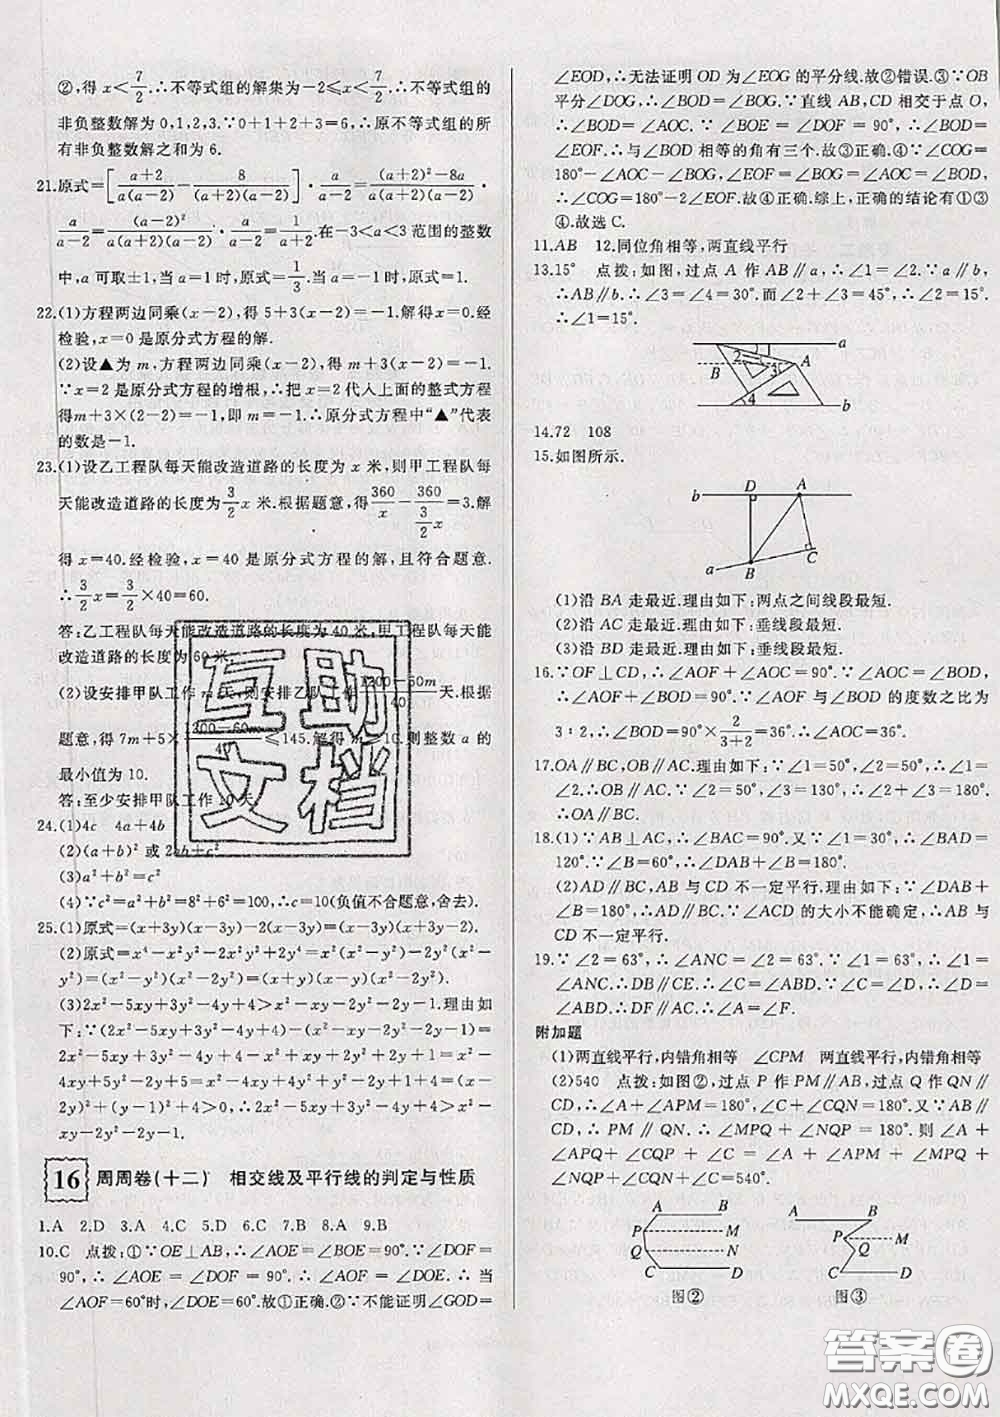 ②,得 x<7/2.∴不等式组的解集为-2≤x<7/2.∴不等式组的
非负整数解为 0,1,2,3.∵0+1+2+3=6,∴原不等式组的所
有非负整数解之和为 6.
21.原式=[(a+2)/(a(a-2)) - 8/((a+2)(a-2))]·a/(a-2)=((a+2)²-8a)/(a(a+2)(a-2))·
a/(a-2)=(a-2)²/(a(a+2)(a-2))·a/(a-2)=1/(a+2).在-3<a<3 范围的整数
中,a 可取±1,当 a=1 时,原式=1/3.当 a=-1 时,原式=1.
22.(1)方程两边同乘(x-2),得 5+3(x-2)=-1.解得x=0.经
检验,x=0是原分式方程的解.
(2)设▲为 m,方程两边同乘(x-2),得 m+3(x-2)=-1.
∵x=2 是原分式方程的增根,∴把 x=2 代入上面的整式方程
得m+3×(2-2)=-1,即 m=-1.∴原分式方程中“▲”代表
的数是-1.
23.(1)设乙工程队每天能改造道路的长度为 x 米,则甲工程队每
天能改造道路的长度为3/2 x 米.根据题意,得360/x-360/(3/2 x)=3.解
得 x=40.经检验,x=40 是原分式方程的解,且符合题意.
∴3/2x=3/2×40=60.
答:乙工程队每天能改造道路的长度为 40 米,甲工程队每天能
改造道路的长度为 60 米.
(2)设安排甲队工作 m 天,则安排乙队工作(1200-60m)/40天.根据
题意,得 7m+5×(1200-60m)/40≤145.解得 m≥10.则整数 a 的
最小值为 10.
答:至少安排甲队工作 10 天.
24.(1)4c 4a+4b
(2)(a+b)² 或 2ab+c²
(3)a²+b²=c²
(4)∵c²=a²+b²=8²+6²=100,∴c=10(负值不合题意,舍去).
25.(1)原式=(x+3y)(x-3y)-2(x-3y)=(x-3y)(x+3y-2).
(2)原式=x⁴-x²y²-x²y²+y⁴=x²(x²-y²)-y²(x²-
y²)=(x²-y²)(x²-y²)=(x+y)(x-y)(x+y)(x-y)=
(x+y)²(x-y)².
(3)2x²-5xy+3y²-4y+4>x²-xy-2y²-2y.理由如
下:∵(2x²-5xy+3y²-4y+4)-(x²-xy-2y²-2y)=
2x²-5xy+3y²-4y+4-x²+xy+2y²+2y=x²-
4xy+5y²-2y+4=x²-4xy+4y²+y²-2y+1+3=(x-
2y)²+(y-1)²+4>0,∴2x²-5xy+3y²-4y+4>x²-
xy-2y²-2y.
16 周周卷(十二) 相交线及平行线的判定与性质
1.A 2.D 3.A 4.C 5.D 6.C 7.B 8.A 9.B
10.C 点拨:①∵OE⊥AB,∴∠AOE=∠BOE=90°.∵∠DOF=
90°,∴∠AOE=∠DOF.∴∠AOF=∠DOE.∴当
∠AOF=60°时,∠DOE=60°.故①正确.②∵不能证明∠GOD=
∠EOD,∴无法证明 OD 为∠EOG 的平分线.故②错误.③∵OB
平分∠DOG,∴∠BOD=∠BOG.∵直线 AB,CD 相交于点 O,
∴∠BOD=∠AOC.∵∠BOE=∠DOF=90°,∴∠BOD=
∠EOF.∴与∠BOD 相等的角有三个.故③正确.④∵∠COG=
180°-∠AOC-∠BOG,∠EOF=∠BOD=∠BOG=∠AOC,
∴∠COG=180°-2∠EOF.故④正确.综上,正确的结论有①③
④.故选 C.
11.AB 12.同位角相等,两直线平行
13.15° 点拨:如图,过点 A 作AB∥a,∴∠1=∠2.∵a∥b,
∴AB∥b.∴∠3=∠4=30°.而∠2+∠3=45°,∴∠2=15°.
∴∠1=15°.
a
1
2
B
3
A
4
b
14.72 108
15.如图所示.
D A
b
C
a B
(1)沿 BA 走最近.理由如下:两点之间线段最短.
(2)沿 AC 走最近.理由如下:垂线段最短.
(3)沿 BD 走最近.理由如下:垂线段最短.
16.∵OF⊥CD,∴∠AOF+∠AOC=90°.∵∠AOC=∠BOD,
∴∠AOF+∠BOD=90°.∵∠AOF 与∠BOD 的度数之比为
3:2,∴∠BOD=90°×2/(3+2)=36°.∴∠AOC=36°.
17.OA∥BC,OB∥AC.理由如下:∵∠1=50°,∠2=50°,∴∠1=
∠2.∴OB∥AC.∵∠2=50°,∠3=130°,∴∠2+∠3=180°.
∴OA∥BC.
18.(1)∵AB⊥AC,∴∠BAC=90°.又∵∠1=30°,∴∠BAD=
120°.∵∠B=60°,∴∠DAB+∠B=180°.
(2)AD∥BC,AB 与 CD 不一定平行.理由如下:∵∠DAB+
∠B=180°,∴AD∥BC.∵∠ACD 的大小不能确定,∴AB 与
CD 不一定平行.
19.∵∠2=63°,∴∠ANC=∠2=63°.∵∠1=63°,∴∠1=
∠ANC.∴DB∥CE.∴∠C=∠ABD.∵∠C=∠D,∴∠D=
∠ABD.∴DF∥AC.∴∠A=∠F.
附加题
(1)两直线平行,内错角相等 ∠CPM 两直线平行,内错角相等
(2)540 点拨:如图②,过点 P 作PM∥AB,过点 Q 作QN∥
CD,∴∠A+∠APM=180°,∠C+∠CQN=180°.又∵AB∥
CD,∴PM∥QN.∴∠MPQ+∠NQP=180°.则∠A+
∠APQ+∠CQP+∠C=∠A+∠APM+∠MPQ+
∠NQP+∠CQN+∠C=540°.
A B
P M
Q N
C D
图②
A B
P M
Q
C D
图③
互助
文档
答案圈
MXQE.COM